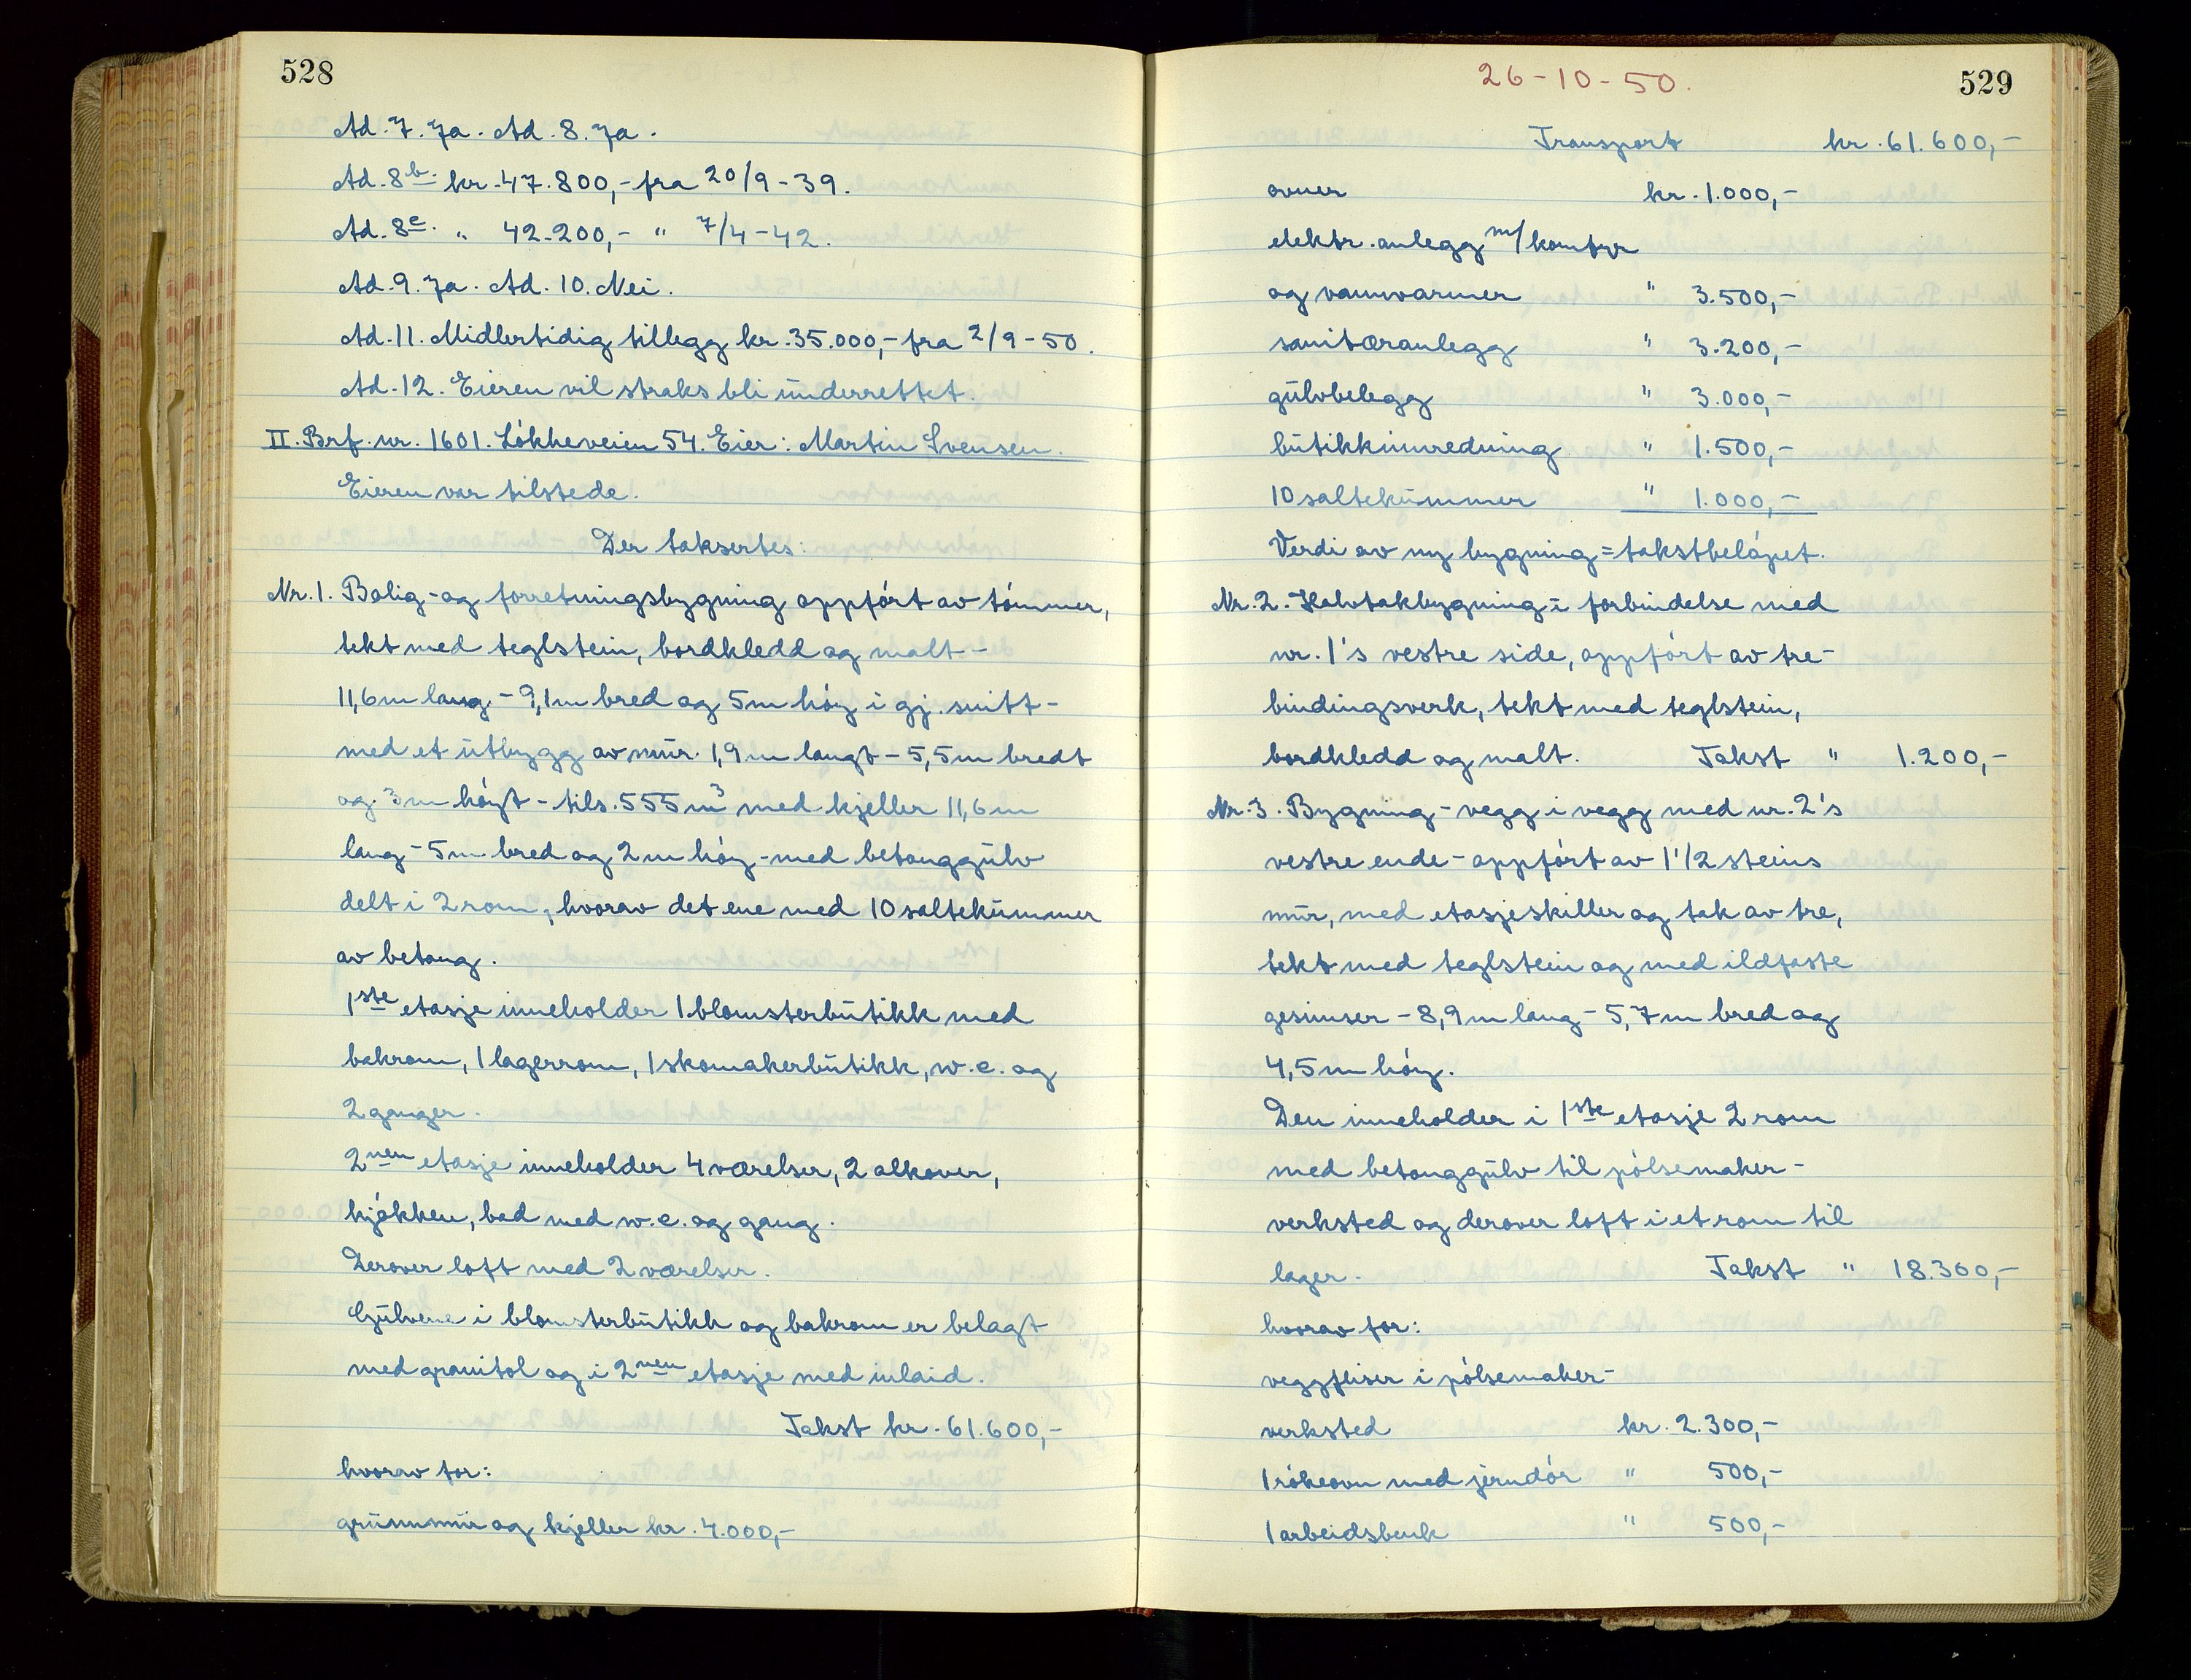 528
Ad. 7. Ja. Ad. 8. Ja.
Ad. 8b. kr. 47.800,- fra 20/9-39.
Ad. 8c. " 42.200,- " 7/4-42.
Ad. 9. Ja. Ad. 10. Nei.
Ad. 11. Midlertidig tillegg kr. 35.000,- fra 2/9-50.
Ad. 12. Eieren vil straks bli underrettet.
II. Brf. nr. 1601. Løkkeveien 54. Eier: Martin Svensen.
Eieren var tilstede.
Der taksertes:
Nr. 1. Bolig- og forretningsbygning oppført av tømmer,
tekt med teglstein, bordkledd og malt -
11,6 m lang - 9,1 m bred og 5 m høy i gj. snitt -
med et utbygg av mur. 1,9 m langt - 5,5 m bredt
og 3 m høyt - tils. 555 m³ med kjeller 11,6 m
lang - 5 m bred og 2 m høy - med betonggulv
delt i 2 rom, hvorav det ene med 10 saltekummer
av betong.
1ste etasje inneholder 1 blomsterbutikk med
bakrom, 1 lagerrom, 1 skomakerbutikk, w.c. og
2 ganger.
2nen etasje inneholder 4 værelser, 2 alkover,
kjøkken, bad med w.c. og gang.
Derover loft med 2 værelser.
Gulvene i blomsterbutikk og bakrom er belagt
med granitol og i 2nen etasje med inlaid.
Takst kr. 61.600,-
hvorav for:
grunnmur og kjeller kr. 4.000,-
26-10-50.
529
Transport kr. 61.600,-
ovner kr. 1.000,-
elektr. anlegg m/komfyr
og vannvarmer " 3.500,-
sanitæranlegg " 3.200,-
gulvbelegg " 3.000,-
butikkinnredning " 1.500,-
10 saltekummer " 1.000,-
Verdi av ny bygning = takstbeløpet.
Nr. 2. Halvtakbygning i forbindelse med
nr. 1's vestre side, oppført av tre-
bindingsverk, tekt med teglstein,
bordkledd og malt. Takst " 1.200,-
Nr. 3. Bygning - vegg i vegg med nr. 2's
vestre ende - oppført av 1 1/2 steins
mur, med etasjeskiller og tak av tre,
tekt med teglstein og med ildfaste
gesimser - 8,9 m lang - 5,7 m bred og
4,5 m høy.
Den inneholder i 1ste etasje 2 rom
med betonggulv til pølsemaker-
verksted og derover loft i et rom til
lager. Takst " 18.300,-
hvorav for:
veggfliser i pølsemaker-
verksted kr. 2.300,-
1 røkeovn med jerndør " 500,-
1 arbeidsbenk " 500,-